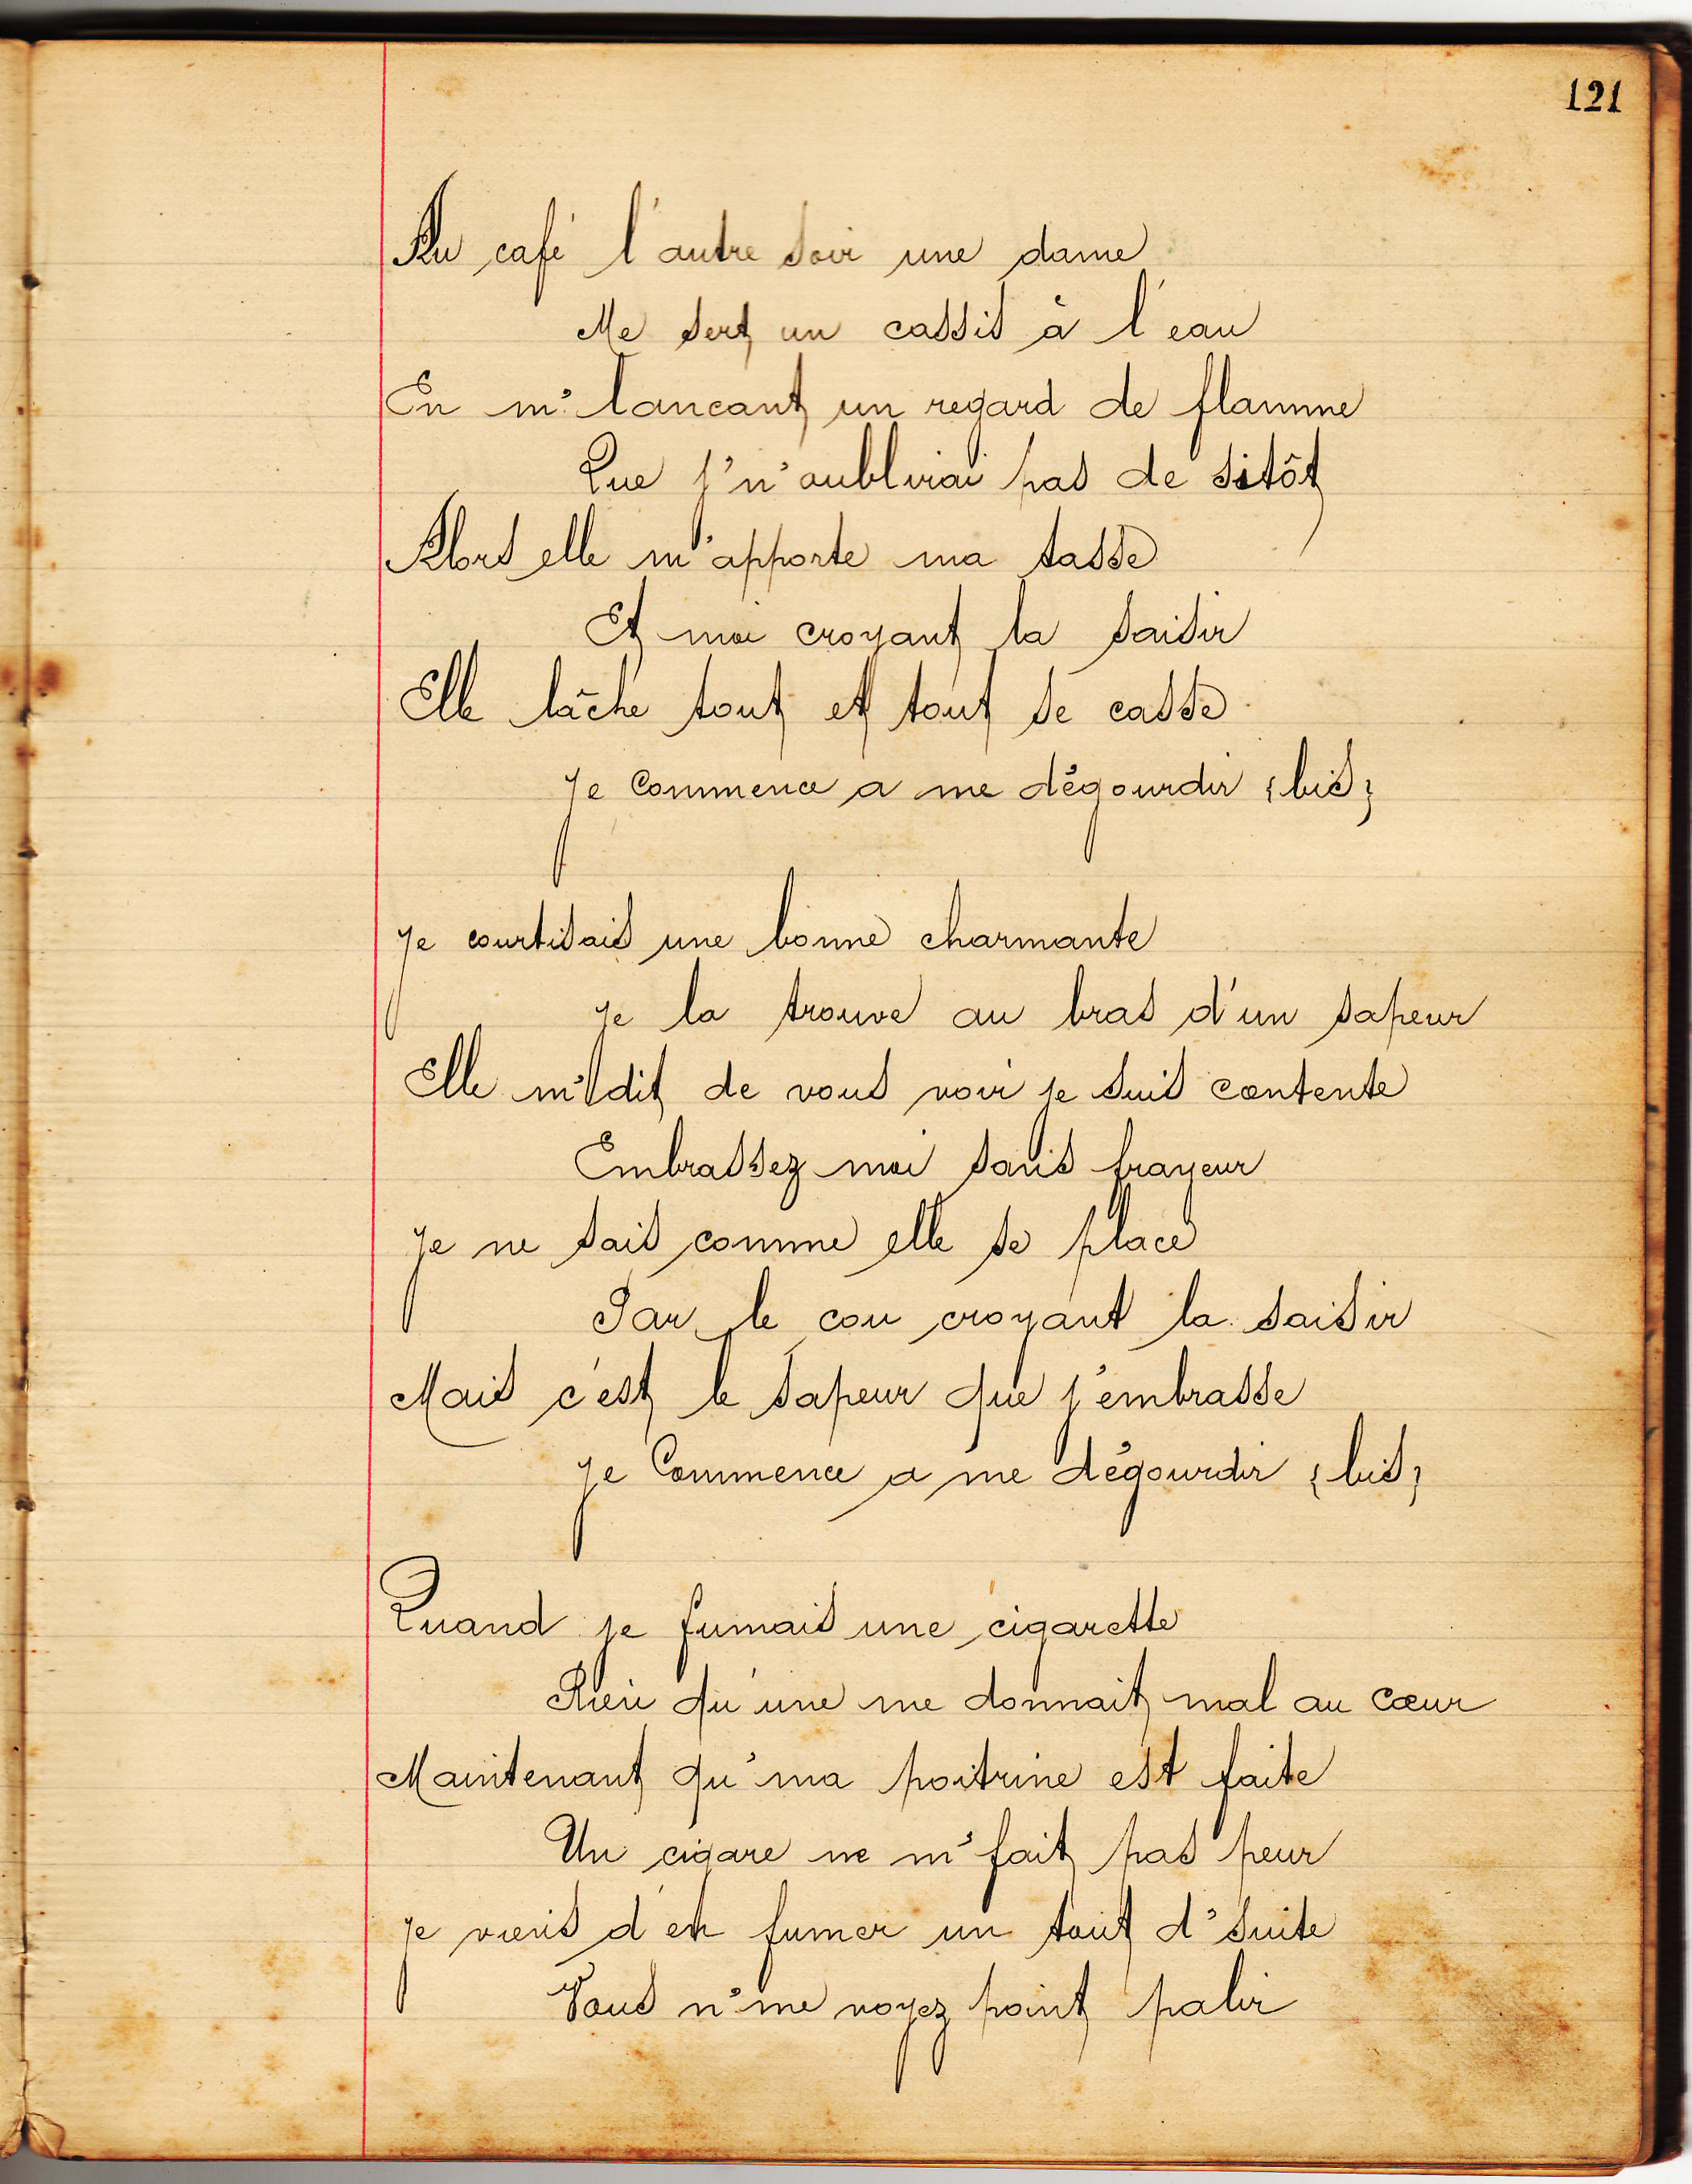 121
Au café l'autre soir une dame
Me sert un cassis à l'eau
En m' lancant un regard de flamme
Que j'n'aublirai pas de sitôt
Alors elle m'apporte ma tasse
Et moi croyant la saisir
Elle lâche tout et tout se casse
Je Commence a me dégourdir {bis}
Je courtisais une bonne charmante
Je la trouve au bras d'un sapeur
Elle m'dit de vous voir je suis contente
Embrassez moi sans frayeur
Je ne sais comme elle se place
Par le cou croyant la saisir
Mais c'est le sapeur que j'embrasse
Je Commence a me dégourdir {bis}
Quand je fumais une cigarette
Rien qu'une me donnait mal au cœur
Maintenant qu'ma poitrine est faite
Un cigare ne m'fait pas peur
Je viens d'en fumer un tout d'suite
Vous n'me voyez point palir